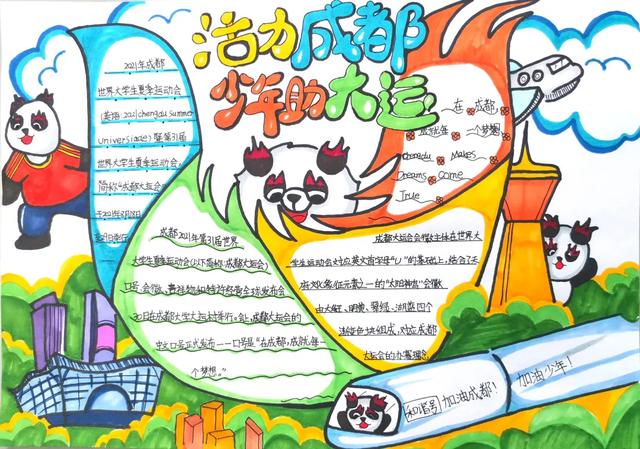 活力成都
少年助大运
2021年成都
世界大学生夏季运动会
(英语:2021 chengdu summer
universiade)暨第31届
世界大学生夏季运动会
简称“成都大运会”
于2021年8月18日
在 成都
成就每一个梦想
Chengdu Makes
Dreams Come
True
成都2021年第31届世界
大学生夏季运动会(以下简称:成都大运会)
口号,会徽、吉祥物
30日在成都大学
成都大运会的
中文口号正式发布——口号是“在成都,成就每一
个梦想。”
成都大运会会徽主体在世界大
学生运动会对应英文首字母“U”的基础上,结合了天
府文化象征元素之一的“太阳神鸟”会徽
由大红、明黄、翠绿、湖蓝四个
渐变色块组成,对应成都
大运会的办赛理念
和谐号
加油成都!
加油少年!